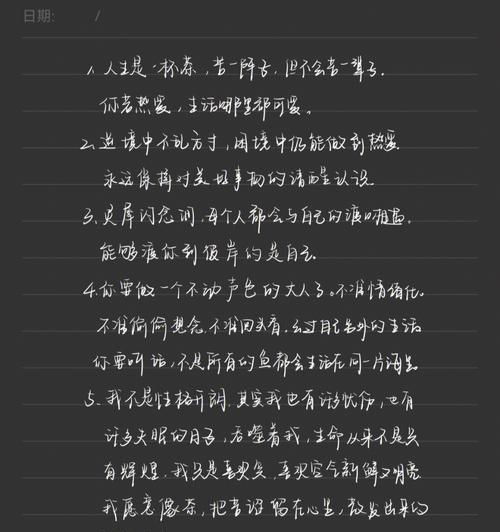 日期: /
1. 人生是一杯茶，苦一阵子，但不会苦一辈子.
你若热爱，生活哪里都可爱。
2. 逆境中不乱方寸，困境中仍能做到热爱
永远保持对美好事物的清醒认识
3. 灵库闪念间，每个人都会与自己的渡口相遇。
能够渡你到彼岸的是自己.
4. 你要做一个不动声色的大人了。不准情绪化.
不准偷偷想念.不准回头看.去过自己另外的生活
你要听话，不是所有的鱼都会生活在同一片海里
5. 我不是性格开朗,其实我也有许多忧伤，也有
许多失眠的日子，吞噬着我，生命从来不是只
有辉煌.我只是喜欢笑，喜欢空气新鲜又明亮
我愿意像茶，把苦涩留在心里，散发出来的